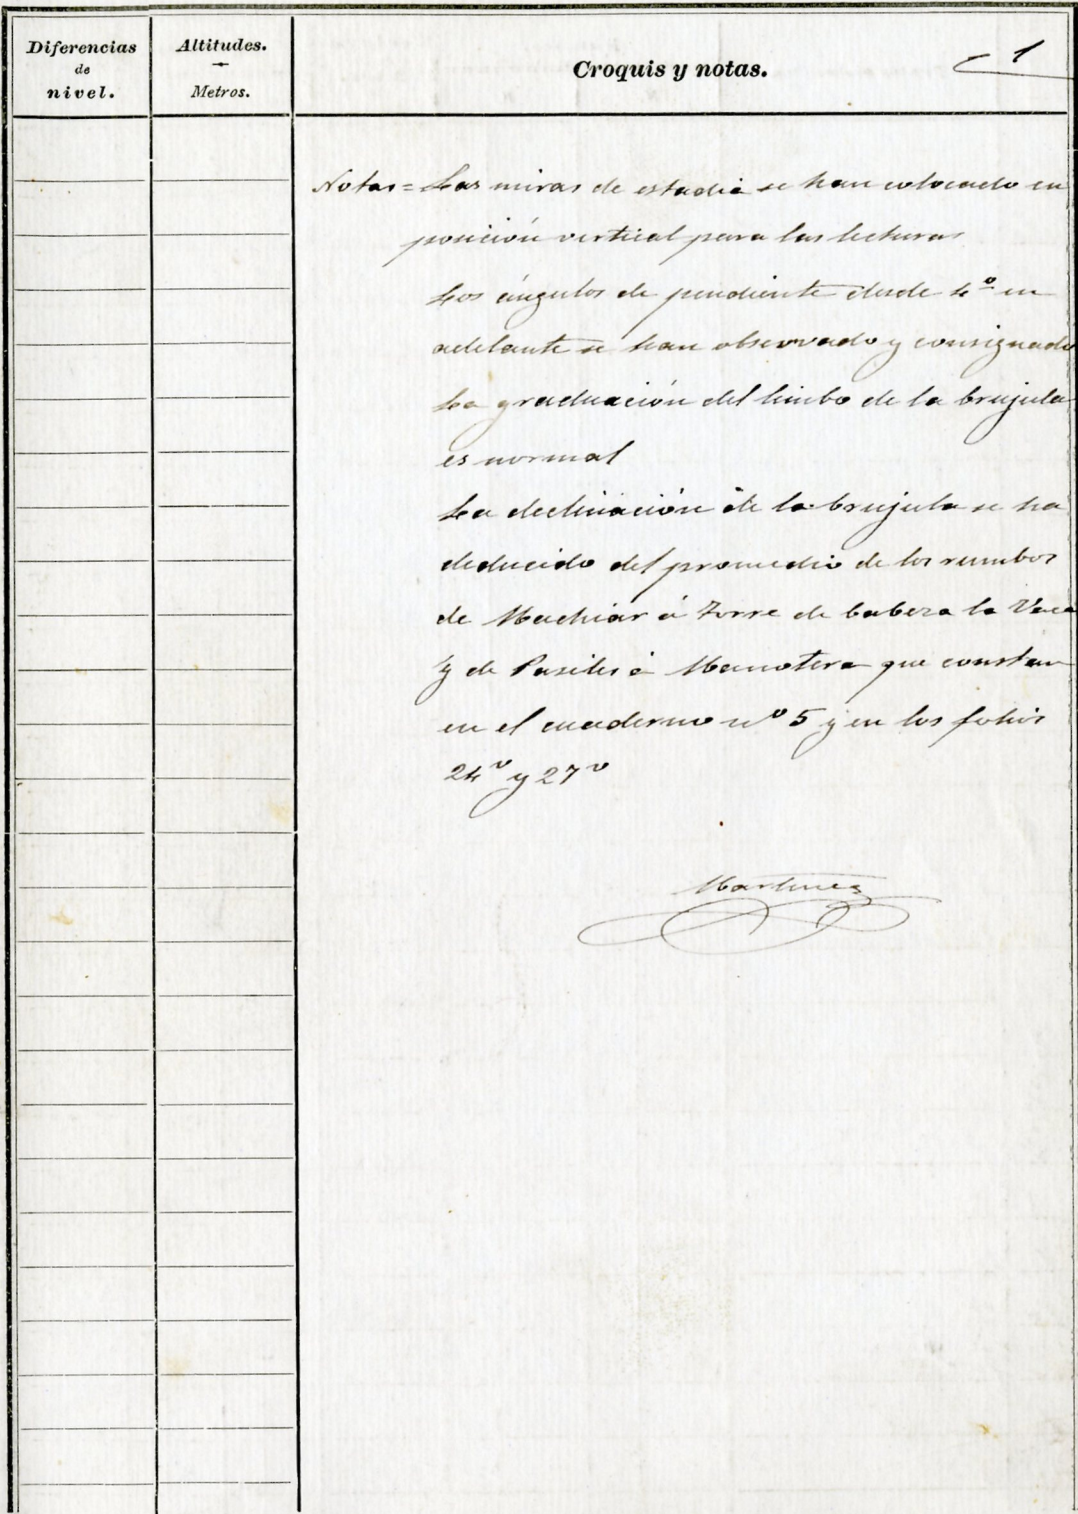 Diferencias
de
nivel.
Altitudes.
Metros.
Croquis y notas.
1
Notas = Las miras de estadia se han colocado en
posición vertical para las lecturas
Los ángulos de pendiente desde 4º en
adelante se han observado y consignado
La graduación del limbo de la brujula
es normal
La declinación de la brujula se ha
deducido del promedio de los rumbos
de á Torre de Cabeza la Vaca
y de á que constan
en el cuaderno nº 5 y en los folios
24º y 27º
Martinez